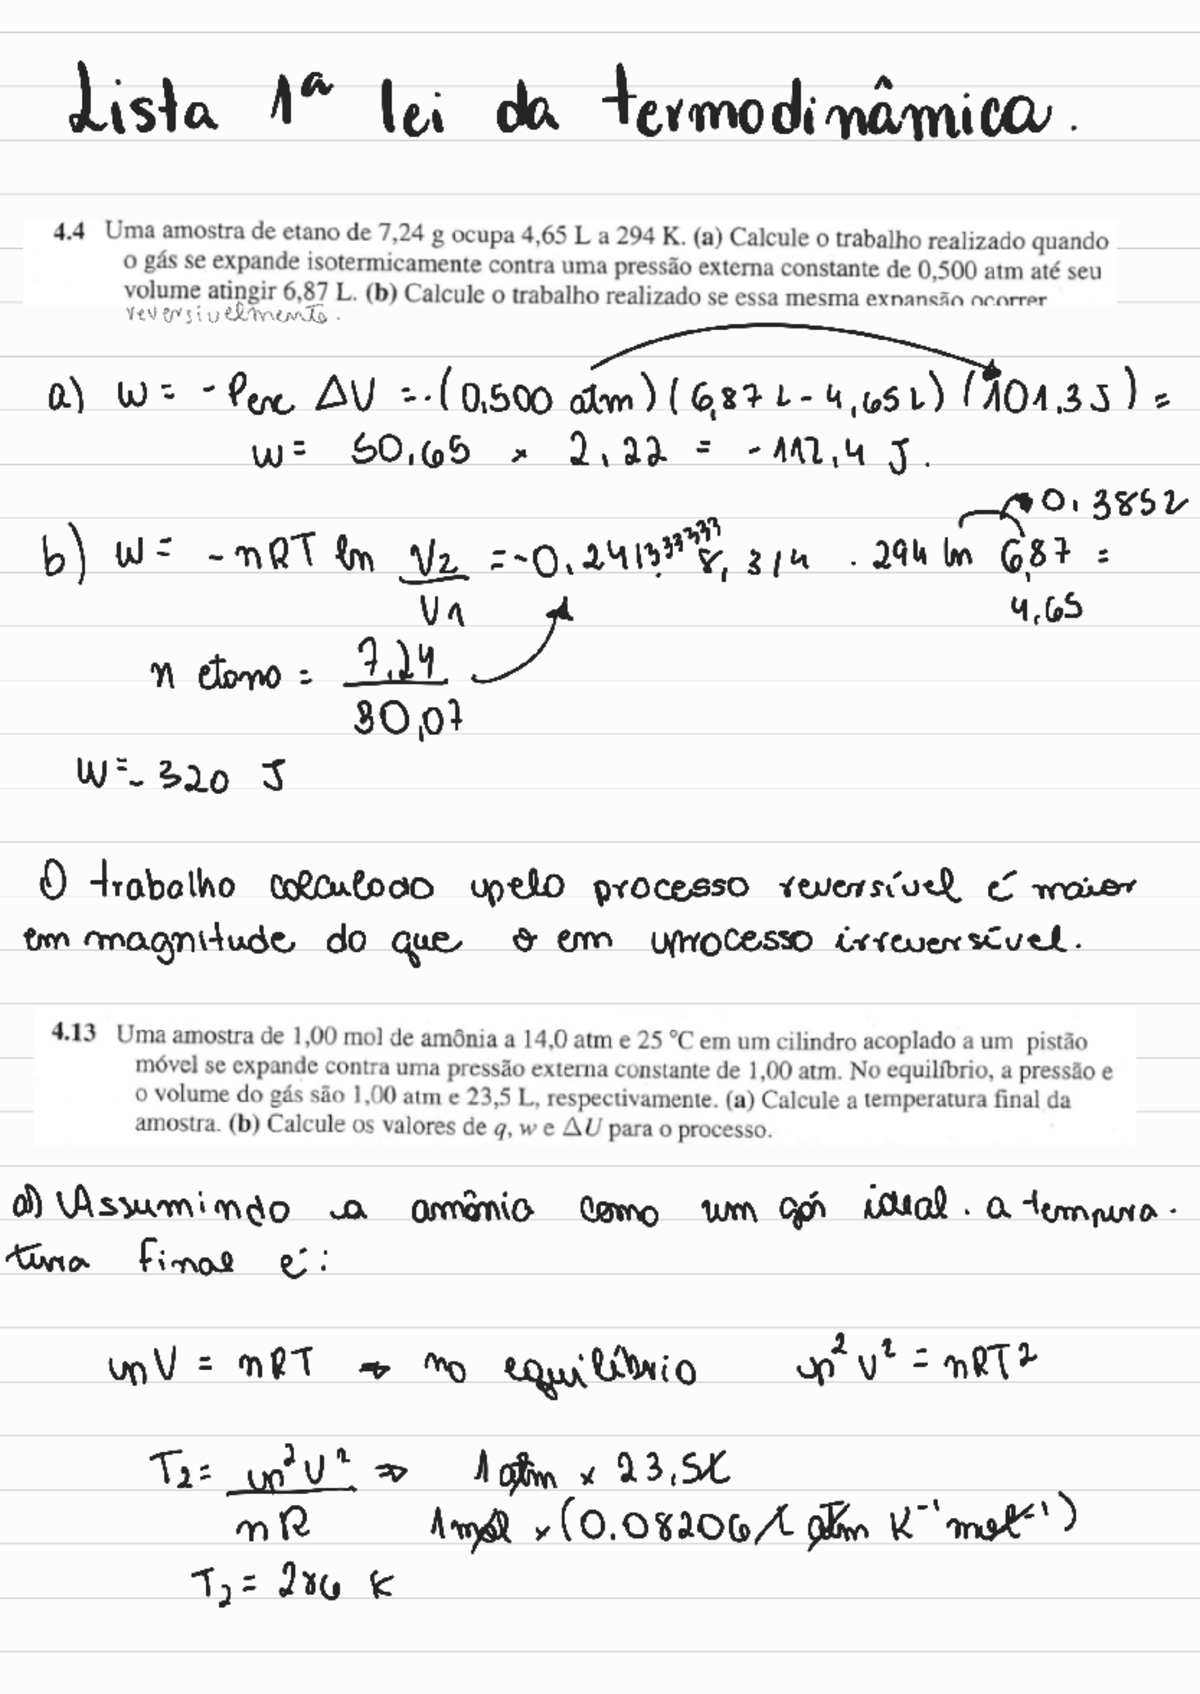 Lista 1ª lei da termodinâmica.
4.4 Uma amostra de etano de 7,24 g ocupa 4,65 L a 294 K. (a) Calcule o trabalho realizado quando
o gás se expande isotermicamente contra uma pressão externa constante de 0,500 atm até seu
volume atingir 6,87 L. (b) Calcule o trabalho realizado se essa mesma expansão ocorrer
reversivelmente.
a) W = - Pexc ΔV = -(0,500 atm) (6,87 L - 4,65 L) (101,3 J) =
W = 50,65 x 2,22 = - 112,4 J.
0,3852
b) W = - nRT ln V2 = -0,241333333 8,314 . 294 ln 6,87 =
V1 4,65
n etano = 7,24
30,07
W = - 320 J
O trabalho calculado pelo processo reversível é maior
em magnitude do que o em processo irreversível.
4.13 Uma amostra de 1,00 mol de amônia a 14,0 atm e 25 °C em um cilindro acoplado a um pistão
móvel se expande contra uma pressão externa constante de 1,00 atm. No equilíbrio, a pressão e
o volume do gás são 1,00 atm e 23,5 L, respectivamente. (a) Calcule a temperatura final da
amostra. (b) Calcule os valores de q, w e ΔU para o processo.
a) Assumindo a amônia como um gás ideal. a tempera-
tura final é:
pV = nRT ⇒ no equilíbrio p²V² = nRT2
T2 = p²V² ⇒ 1 atm x 23,5L
nR 1 mol x (0.08206 L atm K⁻¹ mol⁻¹)
T2 = 286 K